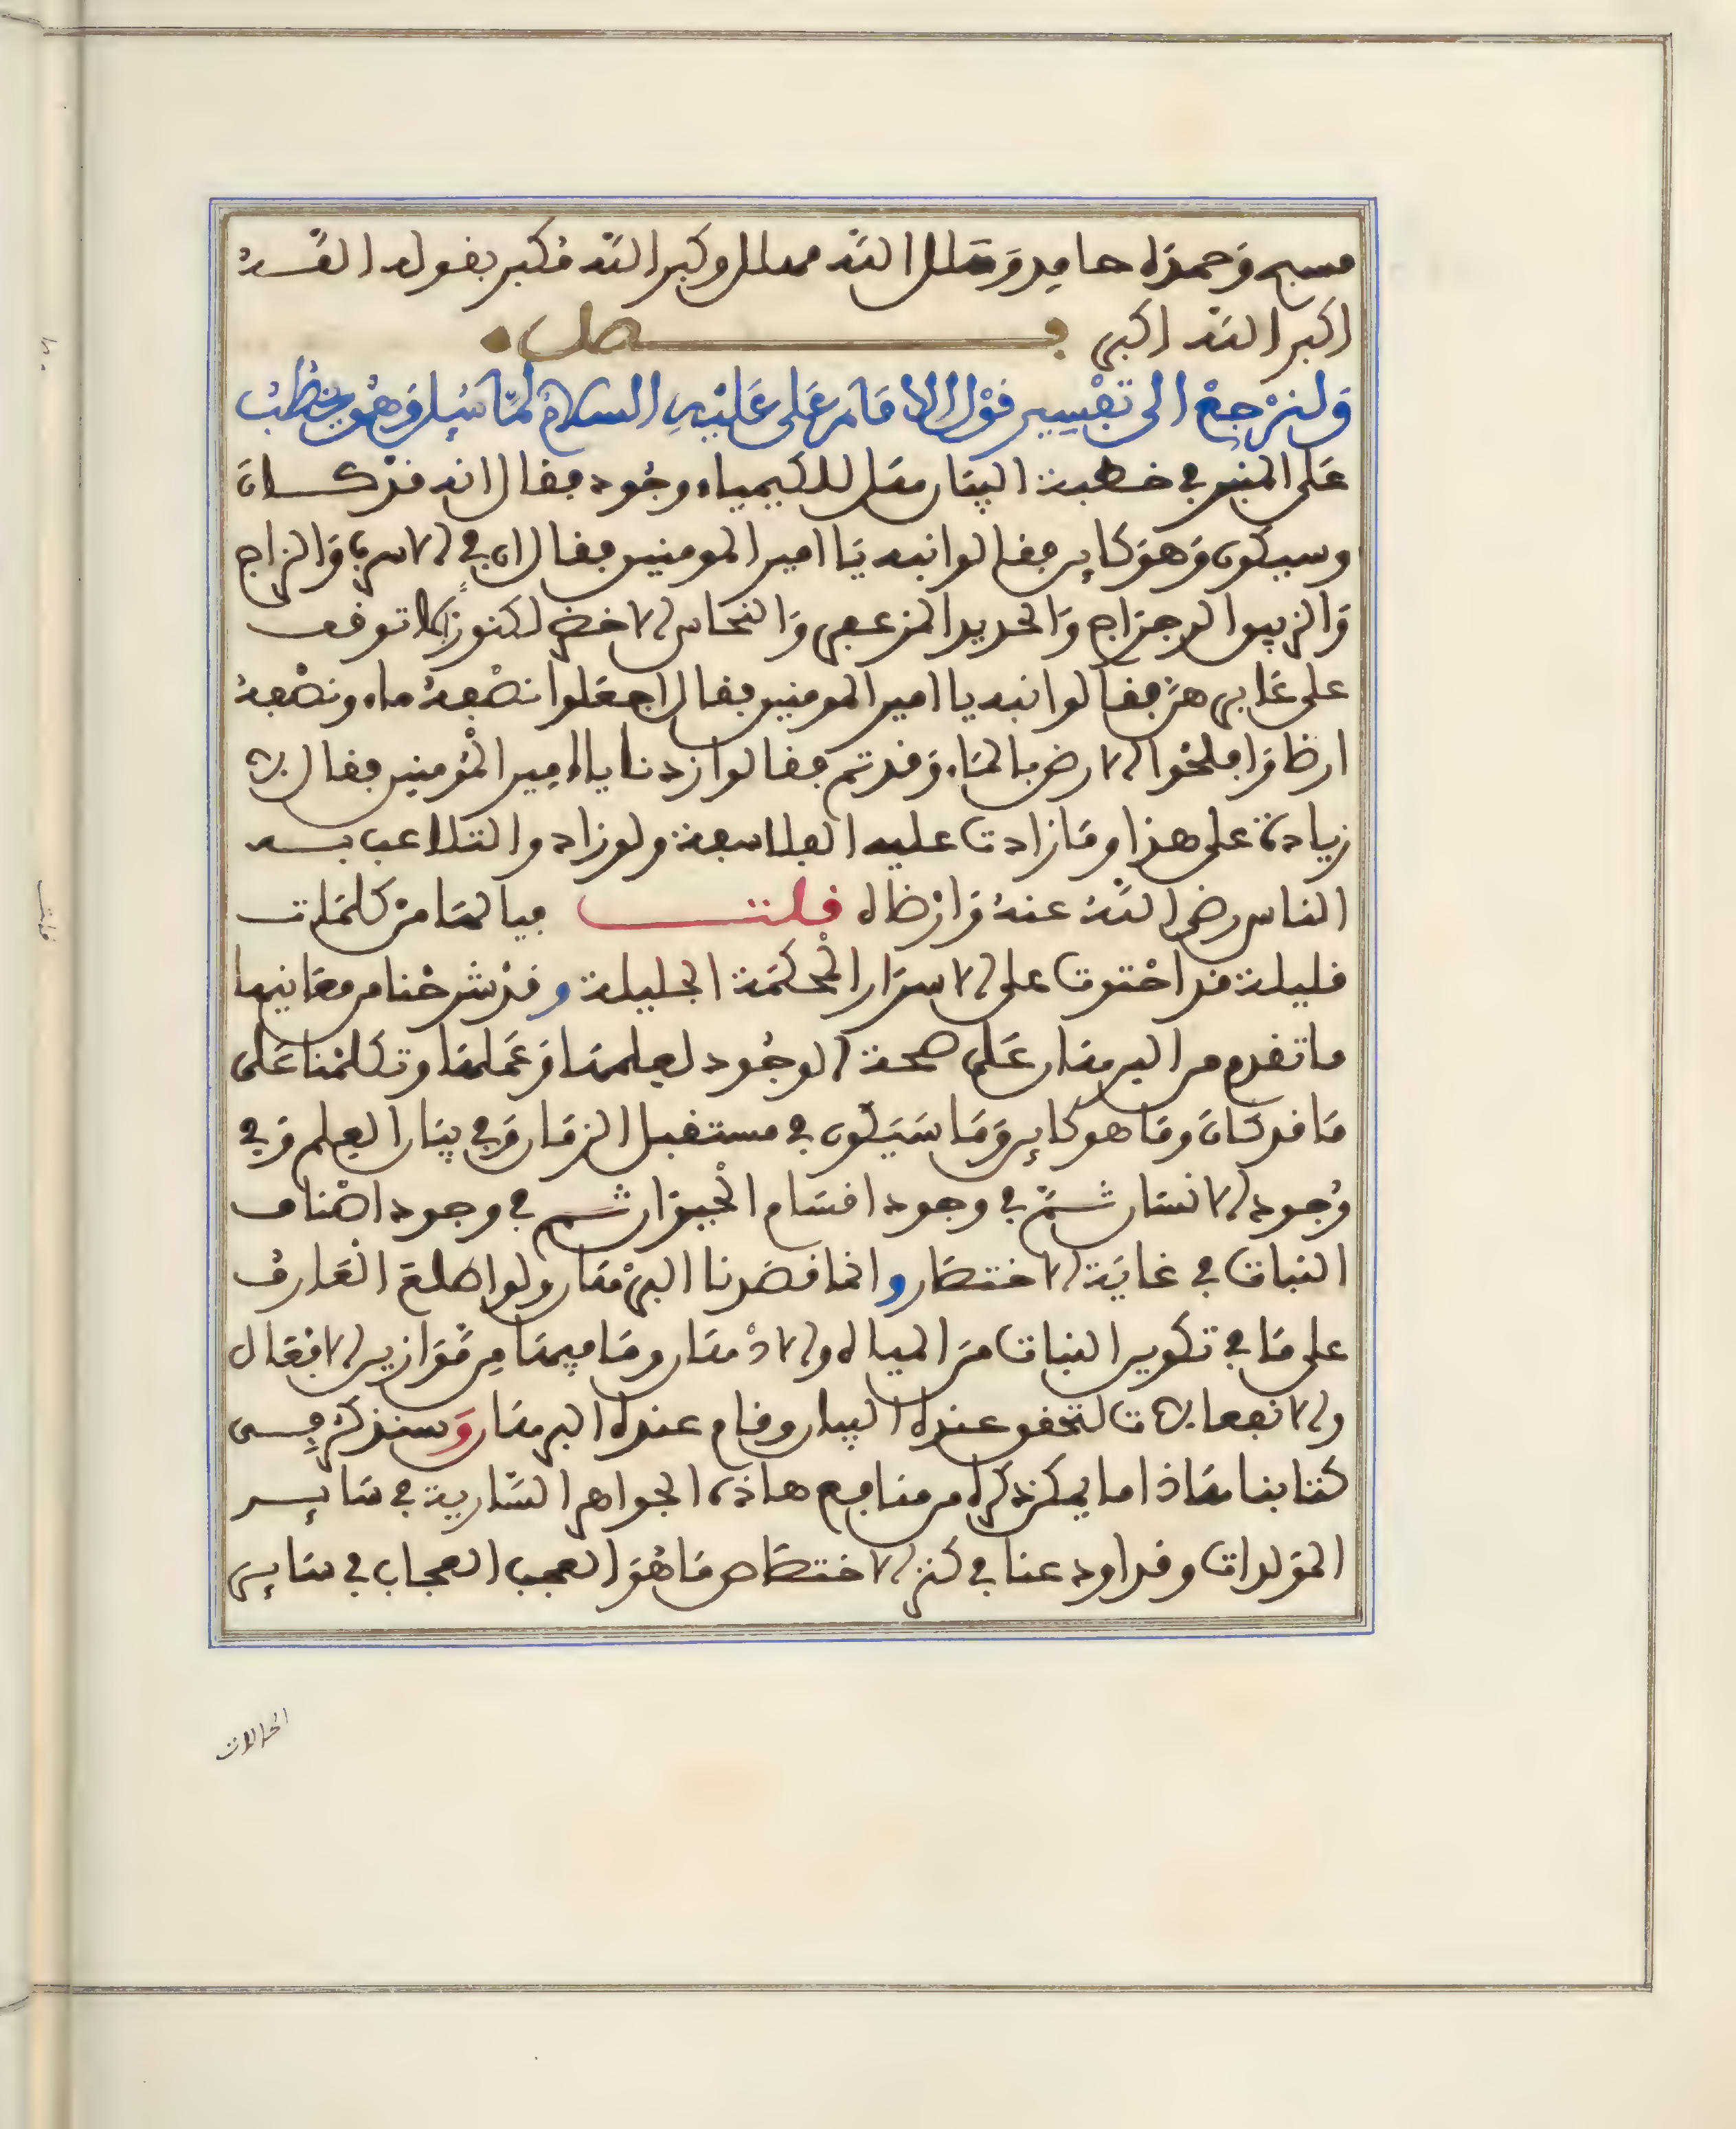 مسبح وحمده حامد وهلل الله مهلل وكبر الله مكبر بقوله الله
اكبر الله اكبر فصل
ولنرجع الى تفسير قول الامام على عليه السلام لما سيل وهو يخطب
على المنبر في خطبة البيان هل للكيمياء وجود فقال انه قد كان
وسيكون وهو كاين فقالوا نبه يا امير المومنين فقال ان في الاسرب والزاج
والزيبق الرجراج والحديد المزعفر والنحاس الاخضر لكنوزا لا توقف
على غابرهن فقالوا نبه يا امير المومنين فقال اجعلوا نصفه ماء ونصفه
ارضا وافلحوا الارض بالماء وقد تم فقالوا زدنا يا امير المؤمنين فقال لا
زيادة على هذا وما زادت عليه الفلاسفة ولو زادوا لتلاعب به
الناس رضي الله عنه وارضاه قلت فيا لها من كلمات
قليلة قد احتوت على الاسرار الحكمة الجليلة وقد شرحنا من معانيها
ما تقدم من البرهان على صحة الوجود لعلمها وعملها وتكلمنا على
ما قد كان وما هو كاين وما سيكون في مستقبل الزمان وفي بيان العلم وفي
وجود الانسان ثم في وجود اقسام الحيوان ثم في وجود اصناف
النبات في غاية الاختصار وانما قصدنا البرهان ولو اطلع العارف
على ما في تكوير النبات من المياه والادهان وما فيها من موازين الافعال
والانفعالات لتحقق عنده البيان وقام عنده البرهان وسنذكر في
كتابنا هاذا ما يمكن ذكره من منافع هاذه الجواهر السارية في ساير
المولدات وقد اودعنا في كنز الاختصاص ما هو العجب العجاب في ساير
الحالات